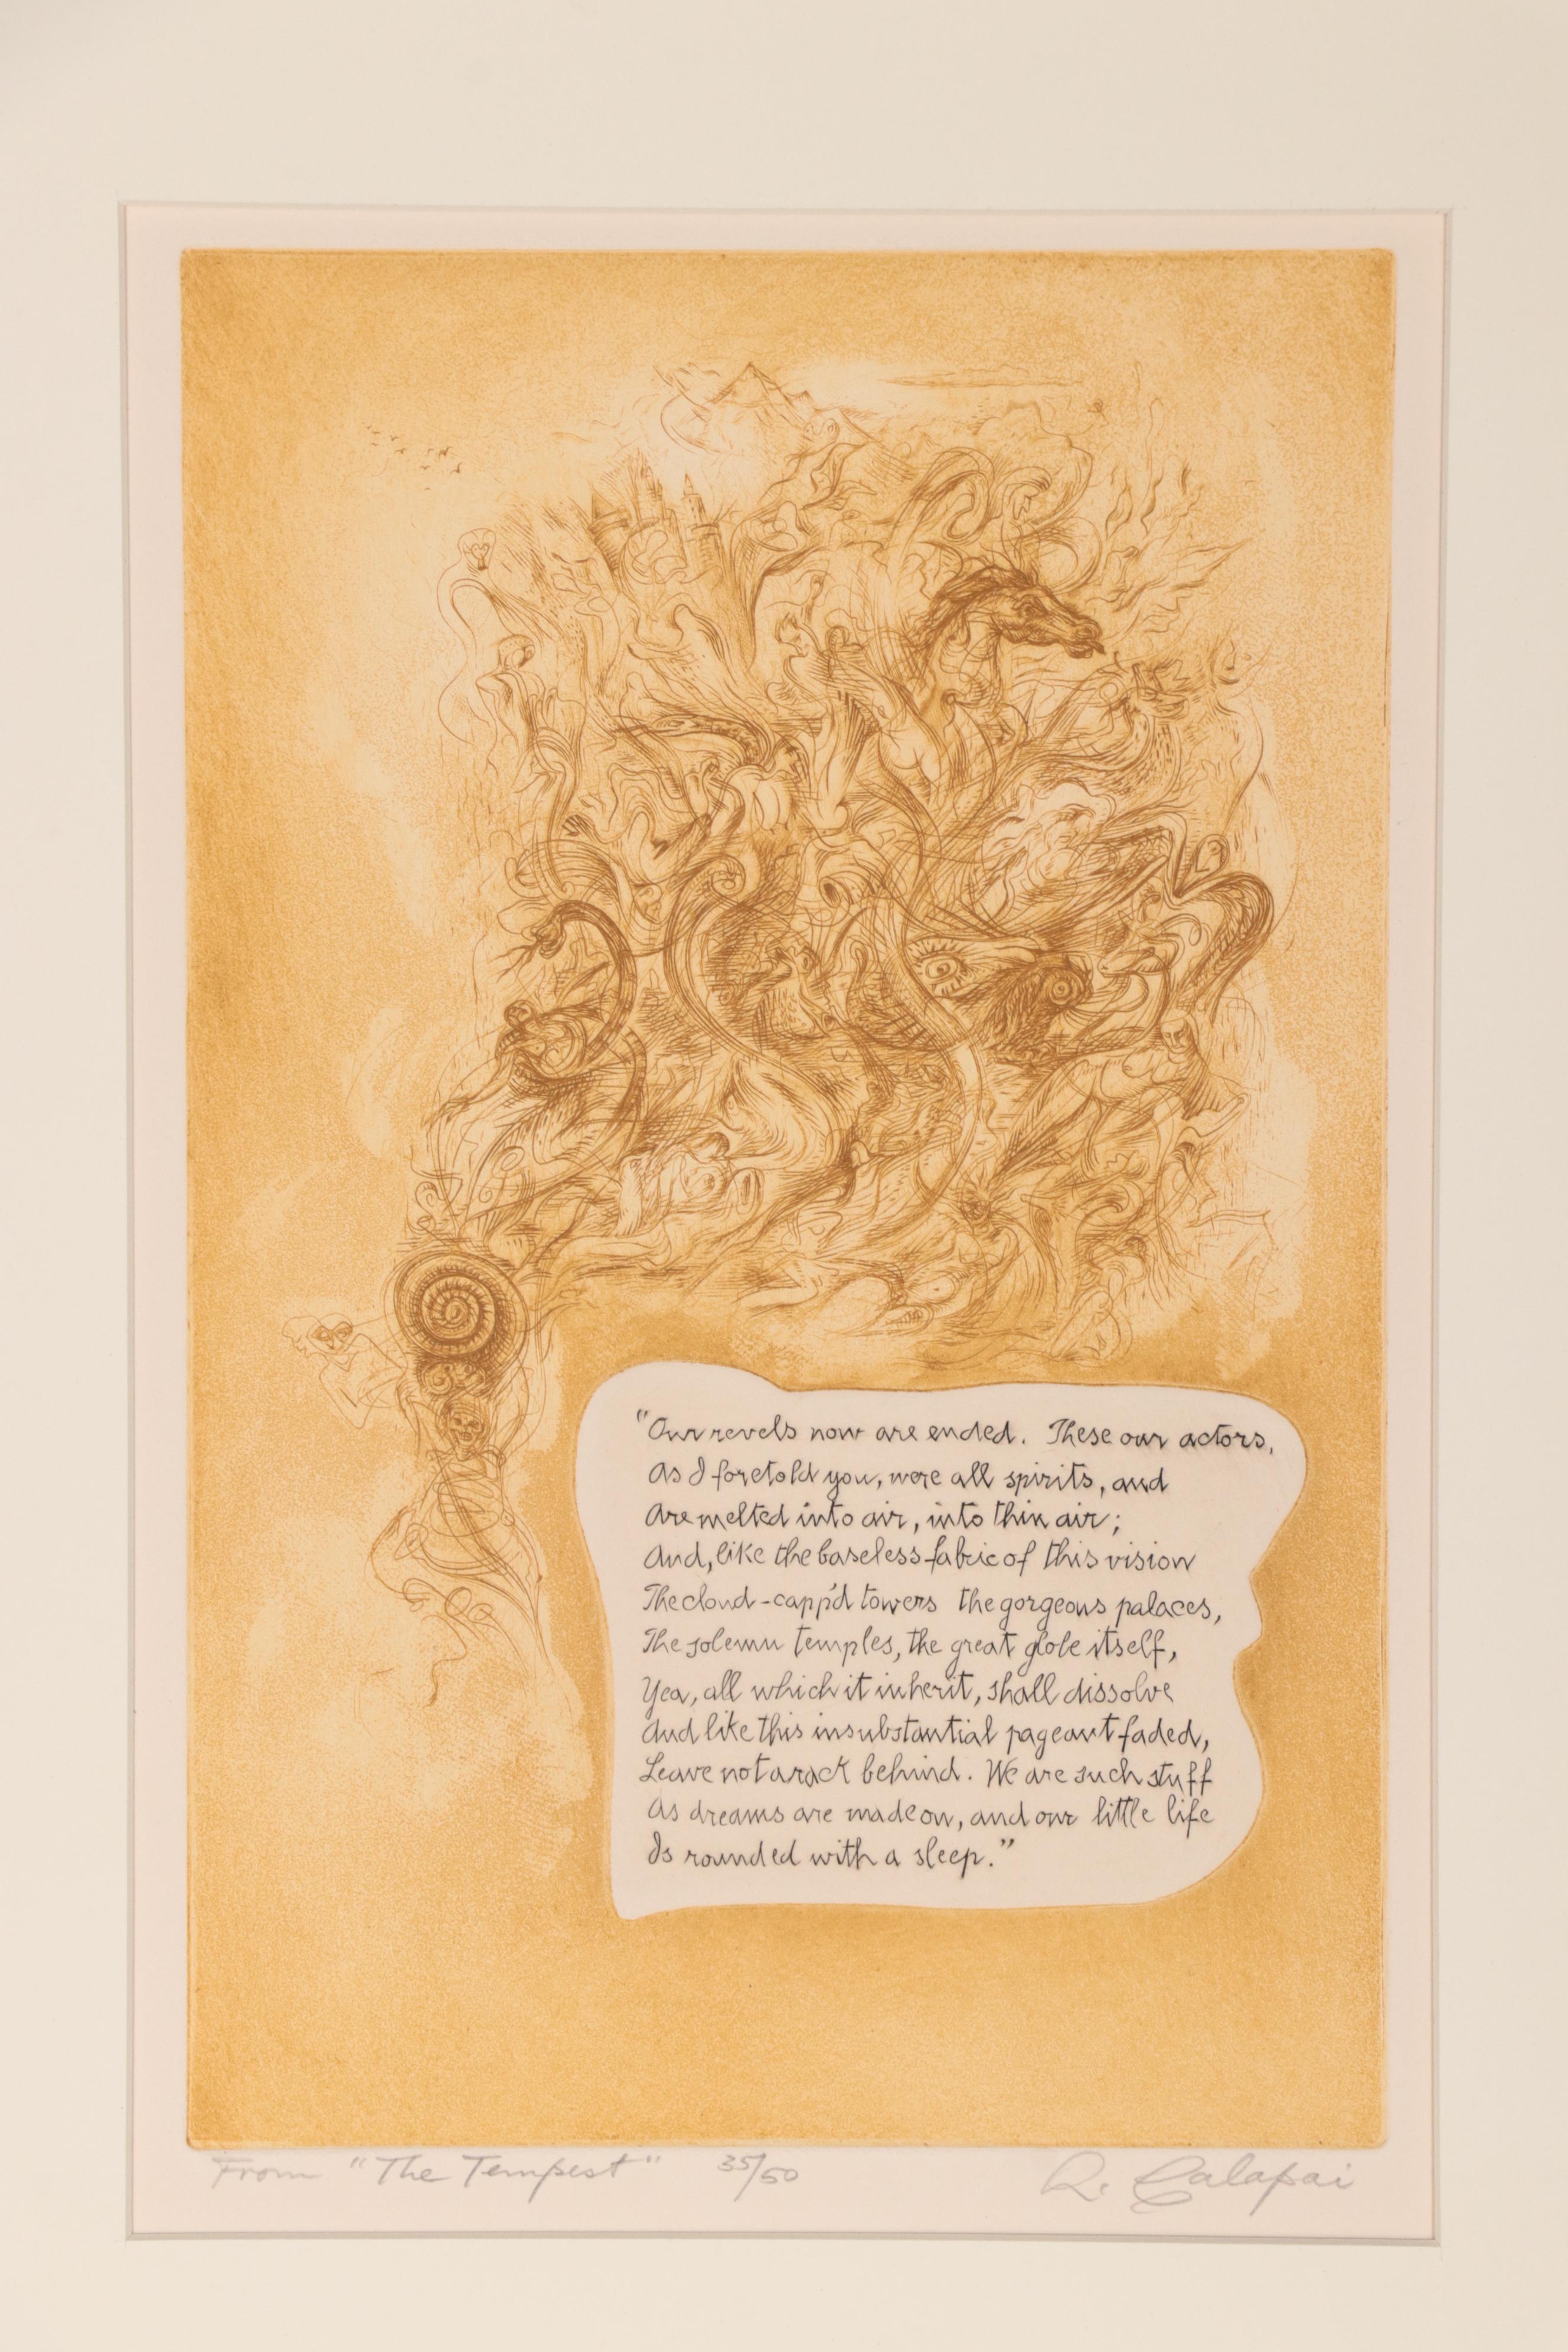 "Our revels now are ended. These our actors,
As I foretold you, were all spirits, and
Are melted into air, into thin air;
And, like the baseless fabric of this vision
The cloud-capp'd towers the gorgeous palaces,
The solemn temples, the great globe itself,
Yea, all which it inherit, shall dissolve
And like this insubstantial pageant faded,
Leave not a rack behind. We are such stuff
As dreams are made on, and our little life
Is rounded with a sleep."
From "The Tempest" 35/50 R. Calapai